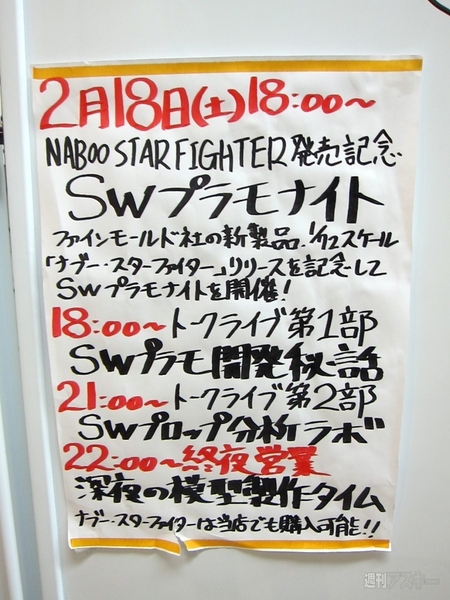 2月18日(土)18:00〜
NABOO STARFIGHTER 発売記念
SWプラモナイト
ファインモールド社の新製品、1/72スケール
「ナブー・スターファイター」リリースを記念して
SWプラモナイトを開催!
18:00〜トークライブ第1部
SWプラモ開発秘話
21:00〜トークライブ第2部
SWプロップ分析ラボ
22:00〜終夜営業
深夜の模型製作タイム
ナブー・スターファイターは当店でも購入可能!!
週刊アスキー